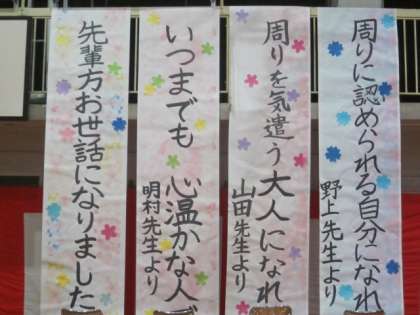 周りに認められる自分になれ
野上先生より
周りを気遣う大人になれ
山田先生より
いつまでも心温かな人
明村先生より
先輩方お世話になりました